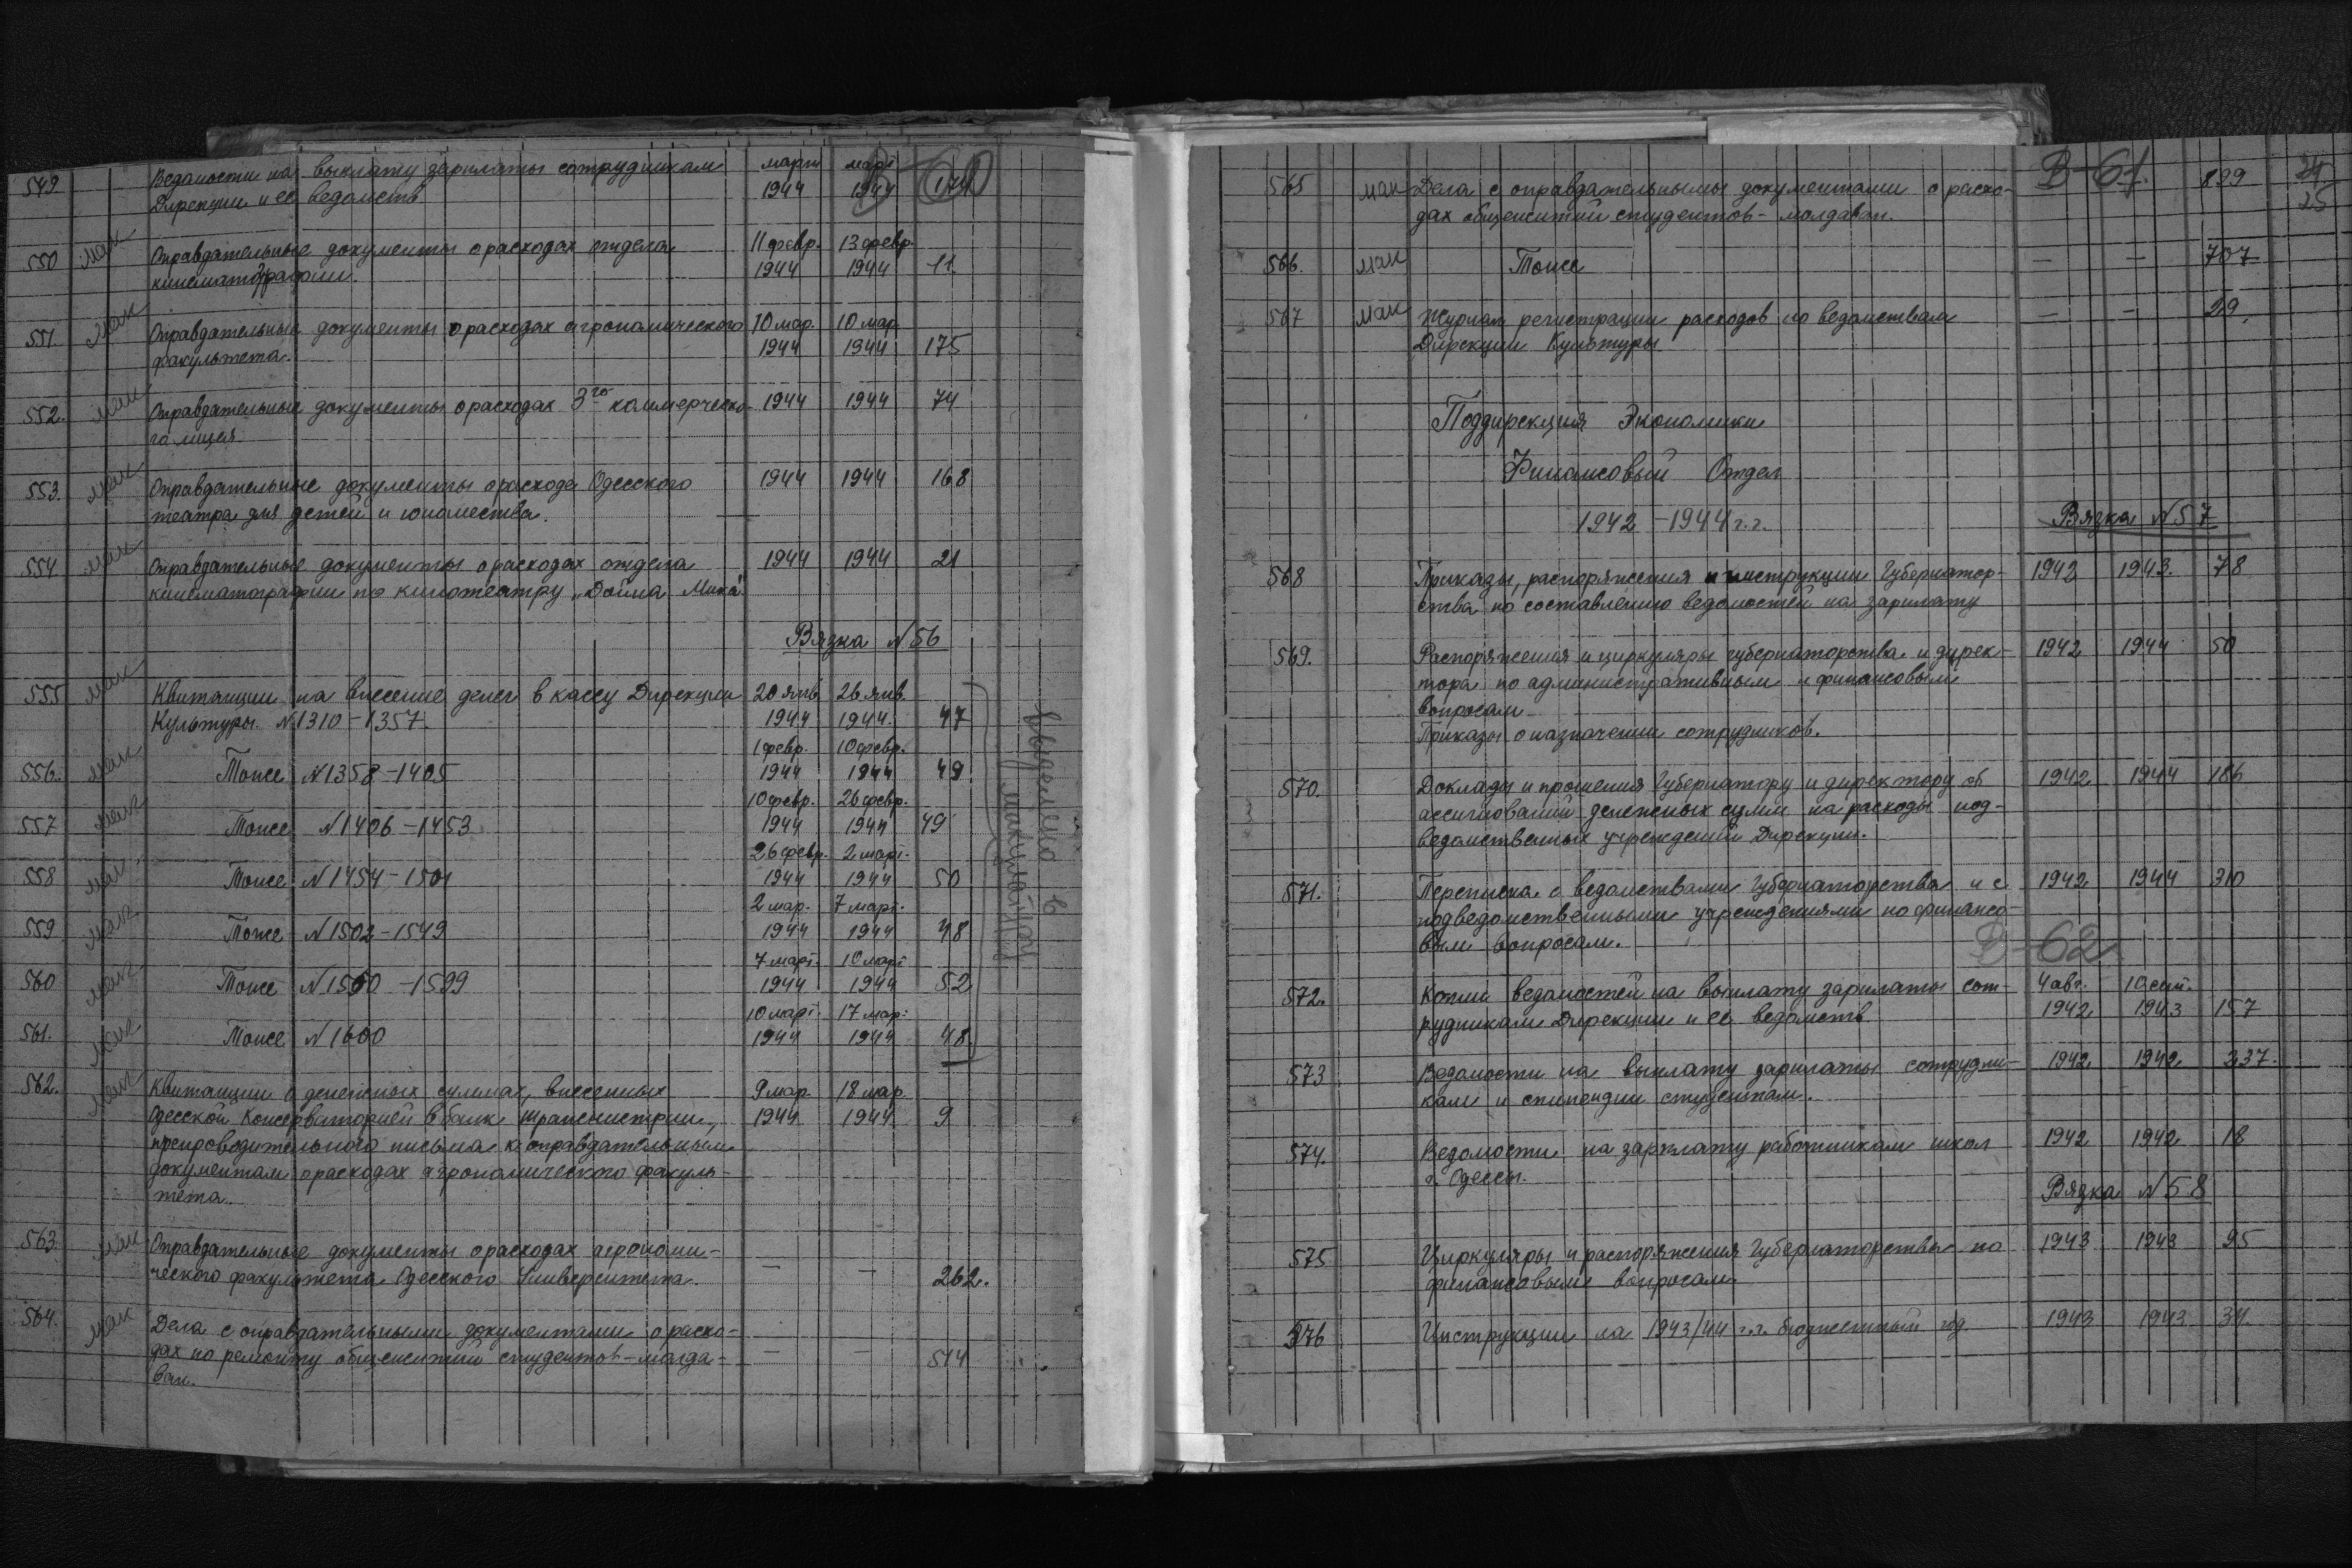 549 Ведомости на выплату зарплаты сотрудникам март март
Дирекции и ее ведомств 1944 1944 171
В-60
550 мак Оправдательные документы о расходах отдела 11 февр. 13 февр.
кинематографии. 1944 1944 11
551. мак Оправдательные документы о расходах агрономического 10 мар. 10 мар.
факультета. 1944 1944 175
552. мак Оправдательные документы о расходах 3го коммерческо- 1944 1944 74
го лицея.
553. мак Оправдательные документы о расходе Одесского 1944 1944 168
театра для детей и юношества.
554 мак Оправдательные документы о расходах отдела 1944 1944 21
кинематографии по кинотеатру „Дойна Мика"
Вязка №56
555 мак Квитанции на внесение денег в кассу Дирекции 20 янв. 26 янв.
Культуры. №1310-1357. 1944 1944. 47
1 февр. 10 февр.
556. мак Тоже №1358-1405 1944 1944 49
10 февр. 26 февр.
557 мак Тоже №1406-1453 1944 1944 49
26 февр. 2 март.
558 мак Тоже №1454-1501 1944 1944 50
2 мар. 7 март.
559 мак Тоже №1502-1549 1944 1944 48
7 март. 10 март
560 мак Тоже №1550-1599 1944 1944 52
10 март. 17 мар.
561. мак Тоже №1600 1944 1944 48.
выделено в
макулатуру
562. мак Квитанции о денежных суммах, внесенных 9 мар 18 мар
Одесской Консерваторией в банк Транснистрии, 1944 1944 9
препроводительного письма к оправдательным
документам о расходах агрономического факуль-
тета.
563 мак Оправдательные документы о расходах агрономи-
ческого факультета Одесского Университета. — — 262.
564. мак Дела с оправдательными документами о расхо-
дах по ремонту общежитий студентов-молда- — — 514
ван.
В-61. 24
25
565 мак Дела с оправдательными документами о расхо- 899
дах общежитий студентов-молдаван.
566. мак Тоже — — 707
567 мак Журнал регистрации расходов по ведомствам — — 29.
Дирекции Культуры
Поддирекция Экономики
Финансовый Отдел
1942-1944 г.г. Вязка №57
568 Приказы, распоряжения и инструкции Губернатор- 1942 1943. 78
ства по составлению ведомостей на зарплату
569. Распоряжения и циркуляры губернаторства и дирек- 1942 1944 50
тора по административным и финансовым
вопросам
Приказы о назначении сотрудников.
570. Доклады и прошения Губернатору и директору об 1942 1944 186
ассигновании денежных сумм на расходы под-
ведомственных учреждений Дирекции.
571. Переписка с ведомствами Губернаторства и с 1942 1944 310
подведомственными учреждениями по финансо-
вым вопросам.
В-62
572. Копии ведомостей на выплату зарплаты сот- 4 авг. 10 сент.
рудникам Дирекции и ее ведомств 1942 1943 157
573 Ведомости на выплату зарплаты сотрудни- 1942 1942 237.
кам и стипендии студентам.
574. Ведомости на зарплату работникам школ 1942 1942 18
г. Одессы.
Вязка №58
575 Циркуляры и распоряжения Губернаторства по 1943 1943 95
финансовым вопросам
576 Инструкции на 1943/44 г.г. бюджетный год 1943 1943. 34.